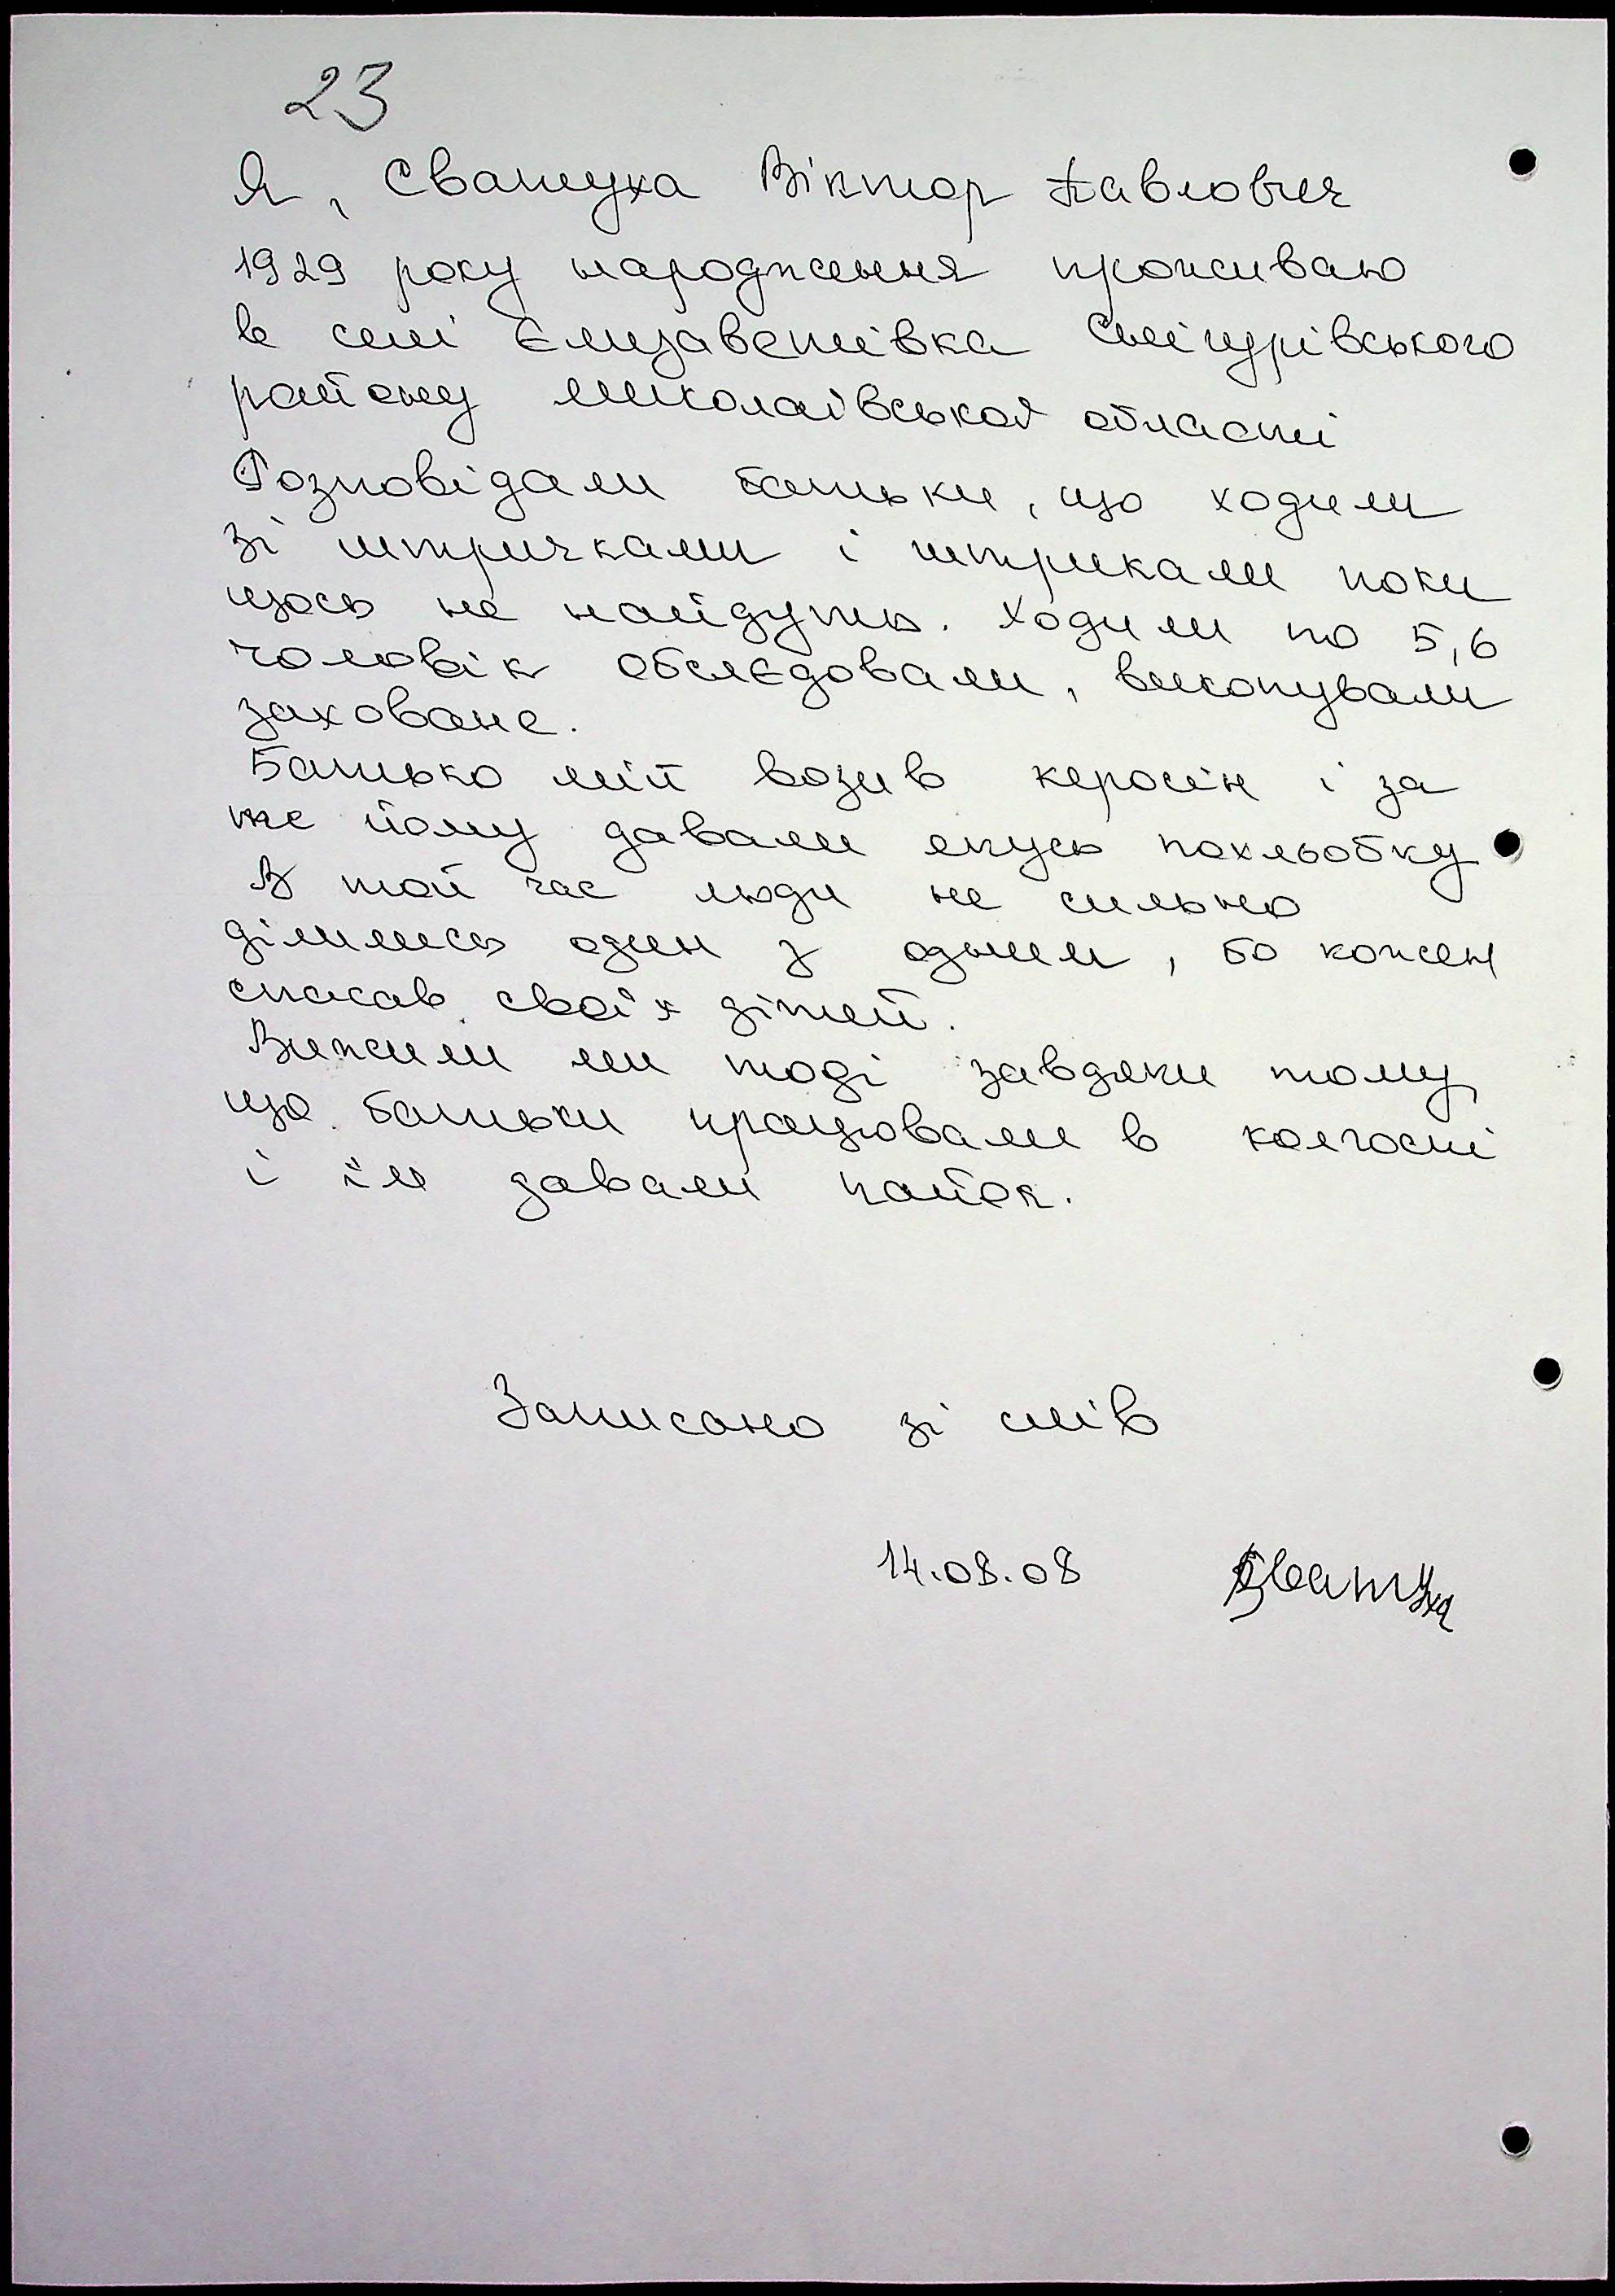 23
Я, Сватуха Віктор Павлович
1929 року народження проживаю
в селі Єлизаветівка Снігурівського
району Миколаївської області
Розповідали батьки, що ходили
зі штричками і штрикали поки
щось не найдуть. Ходили по 5,6
чоловік обслєдовали, викопували
заховане.
Батько мій возив керосін і за
те йому давали якусь похльобку
В той час люди не сильно
ділились один з одним, бо кожен
спасав своїх дітей.
Вижили ми тоді завдяки тому,
що батьки працювали в колгоспі
і їм давали пайок.
Записано зі слів
14.08.08 Сватуха